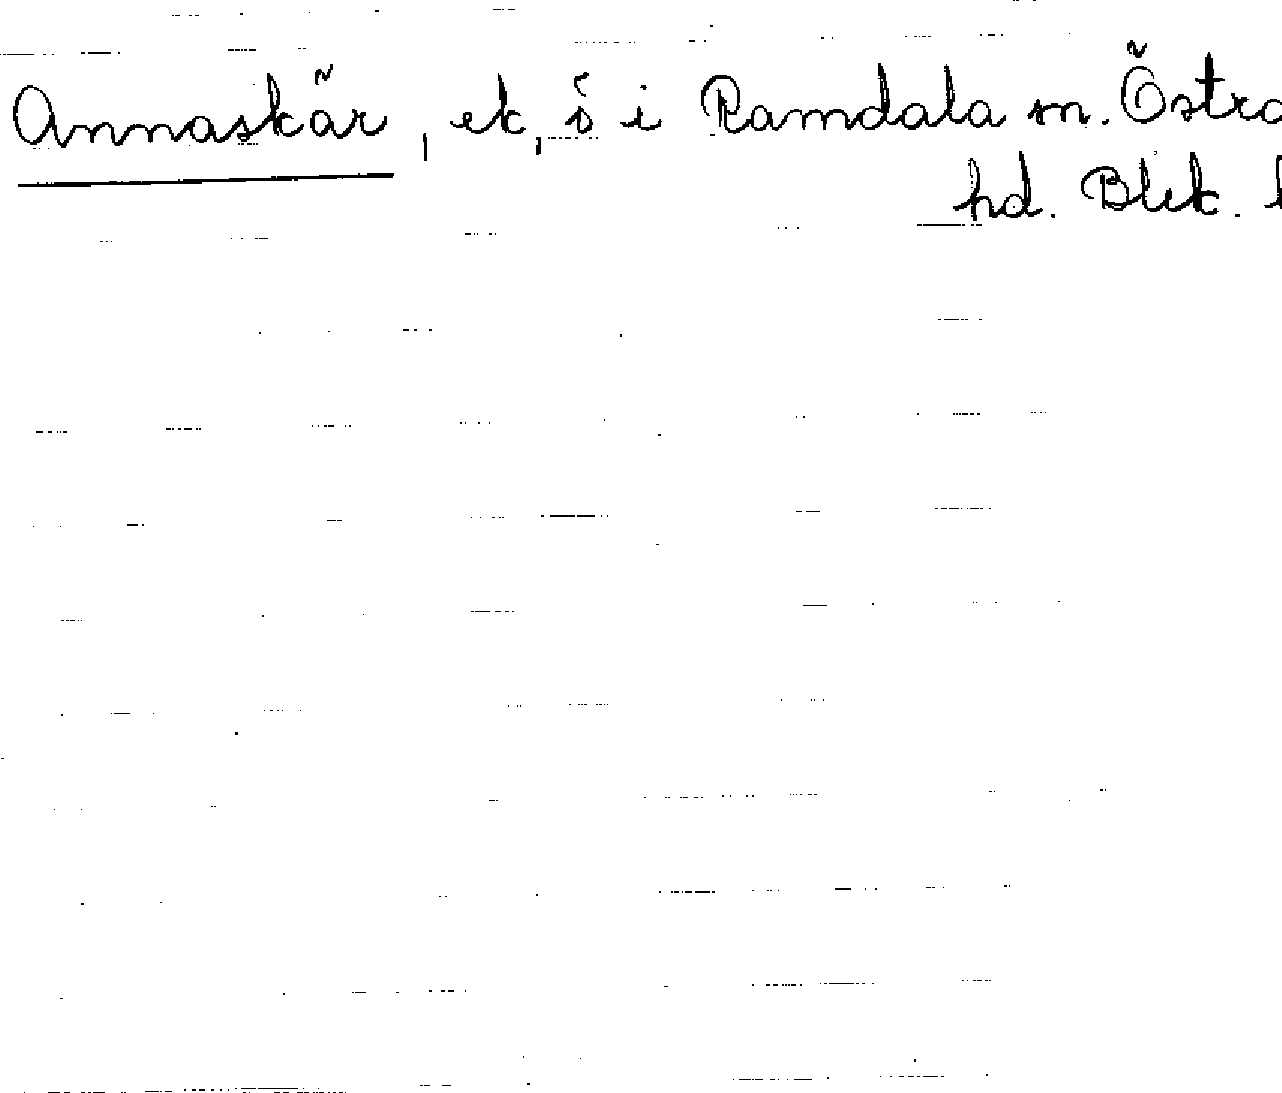 Annaskär, ek, ö i Ramdala sn. Östra
hd. Blek. l